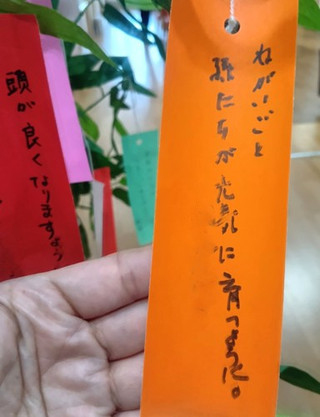 ねがいごと
孫たちが元気に育つように。
頭が良くなりますよう